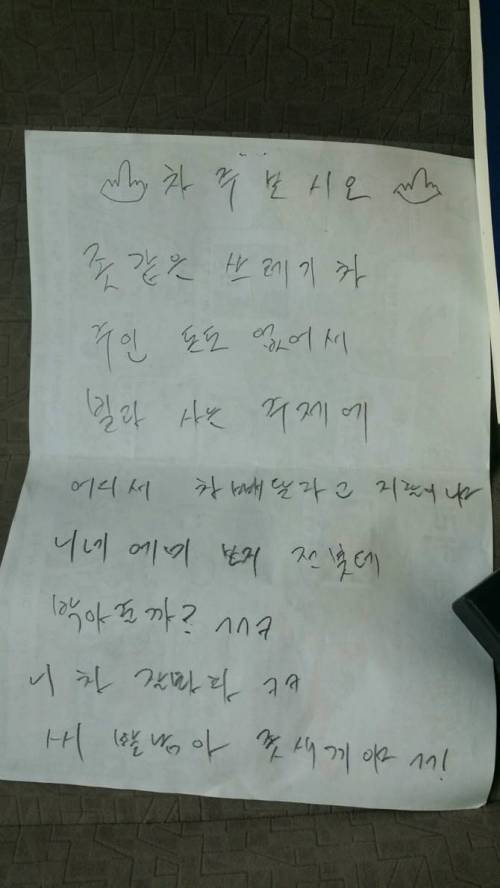 차 주 보 시 오
좆 같은 쓰레기 차
주인 돈도 없어서
빌라 사는 주제에
어디서 차 빼달라고 지랄이냐
니네 에미 보지 전봇데
박아줄까? ㅅㅅㅋ
니 차 잘봐라 ㅋㅋ
씨 발놈아 좆새끼야